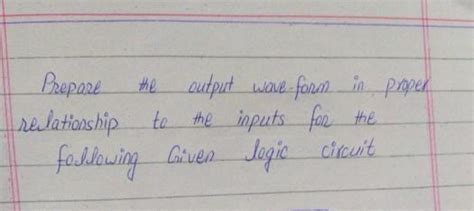 Prepare the output wave-form in proper
relationship to the inputs for the
following Given logic circuit